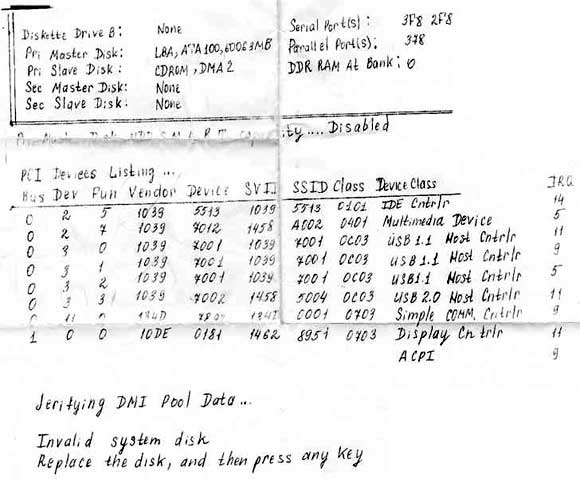 Diskette Drive B: None Serial Port(s): 3F8 2F8
Pri Master Disk: LBA, ATA100, 60063MB Parallel Port(s): 378
Pri Slave Disk: CDROM, DMA2 DDR RAM At Bank: 0
Sec Master Disk: None
Sec Slave Disk: None
Disk .... Disabled
PCI Devices Listing ...
Bus Dev Fun Vendor Device SVID SSID Class Device Class IRQ
0 2 5 1039 5513 1039 5513 0101 IDE Cntrlr 14
0 2 7 1039 7012 1458 A002 0401 Multimedia Device 5
0 3 0 1039 7001 1039 7001 0C03 USB 1.1 Host Cntrlr 11
0 3 1 1039 7001 1039 7001 0C03 USB 1.1 Host Cntrlr 9
0 3 2 1039 7001 1039 7001 0C03 USB1.1 Host Cntrlr 5
0 3 3 1039 7002 1458 5004 0C03 USB 2.0 Host Cntrlr 11
0 0001 0703 Simple COMM. Cntrlr 9
1 0 0 10DE 0181 1462 8951 0703 Display Cntrlr 11
ACPI 9
Jerifying DMI Pool Data...
Invalid system disk
Replace the disk, and then press any key